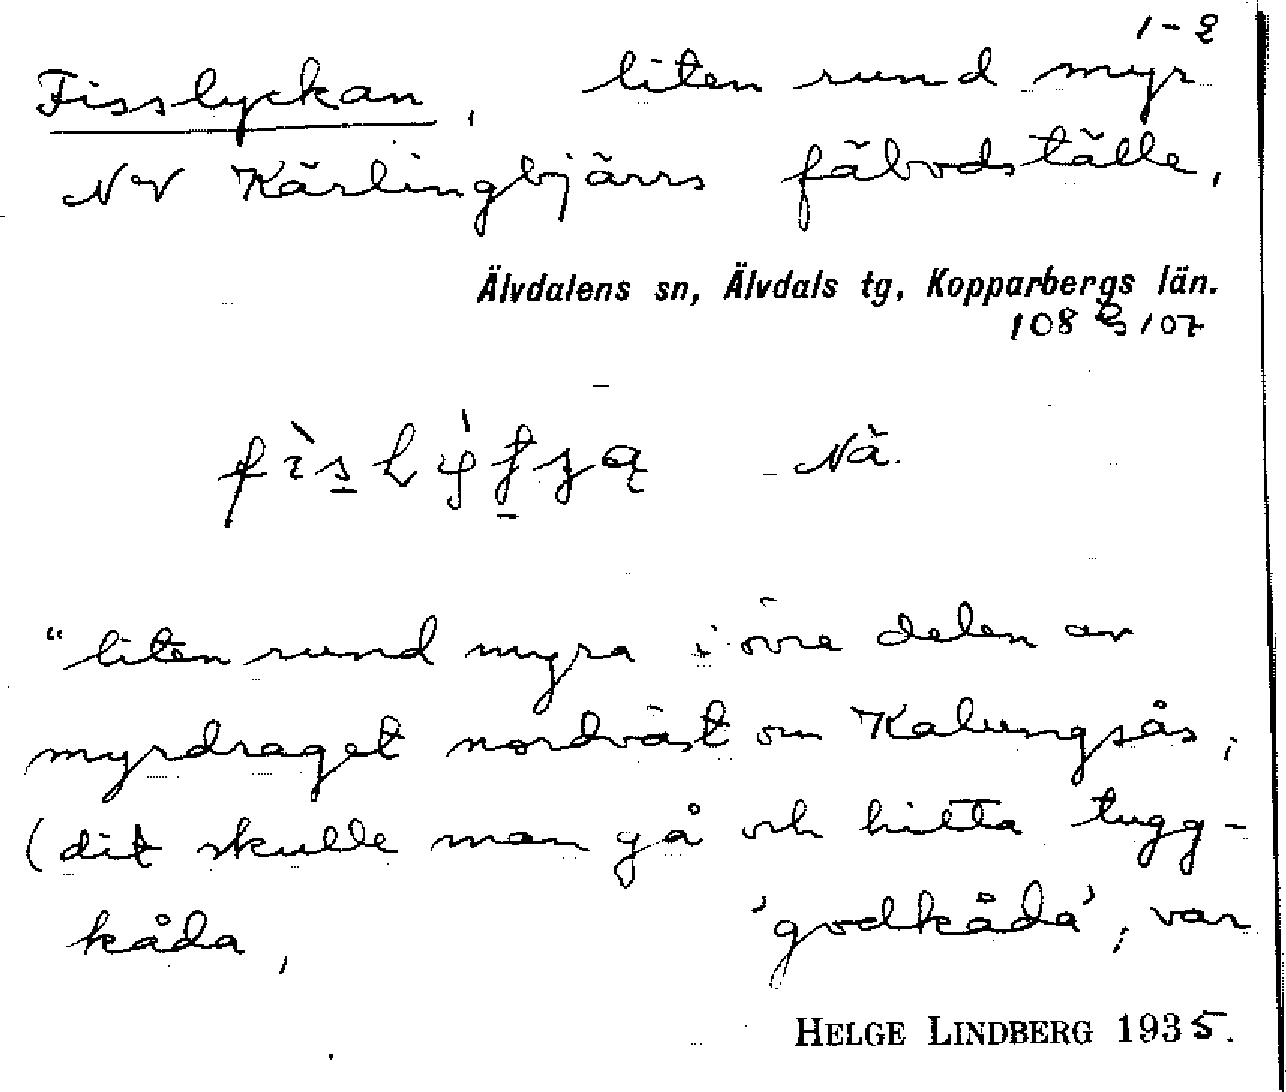 1-2
Fisslyckan, liten rund myr
NV Kärlingbjärrs fäbodställe,
Älvdalens sn, Älvdals tg, Kopparbergs län.
108 & 107
Nä.
"liten rund myra i övre delen av
myrdraget nordväst om Kalungsås;
(dit skulle man gå och hitta tugg-
kåda, 'godkåda'; var
HELGE LINDBERG 1935.